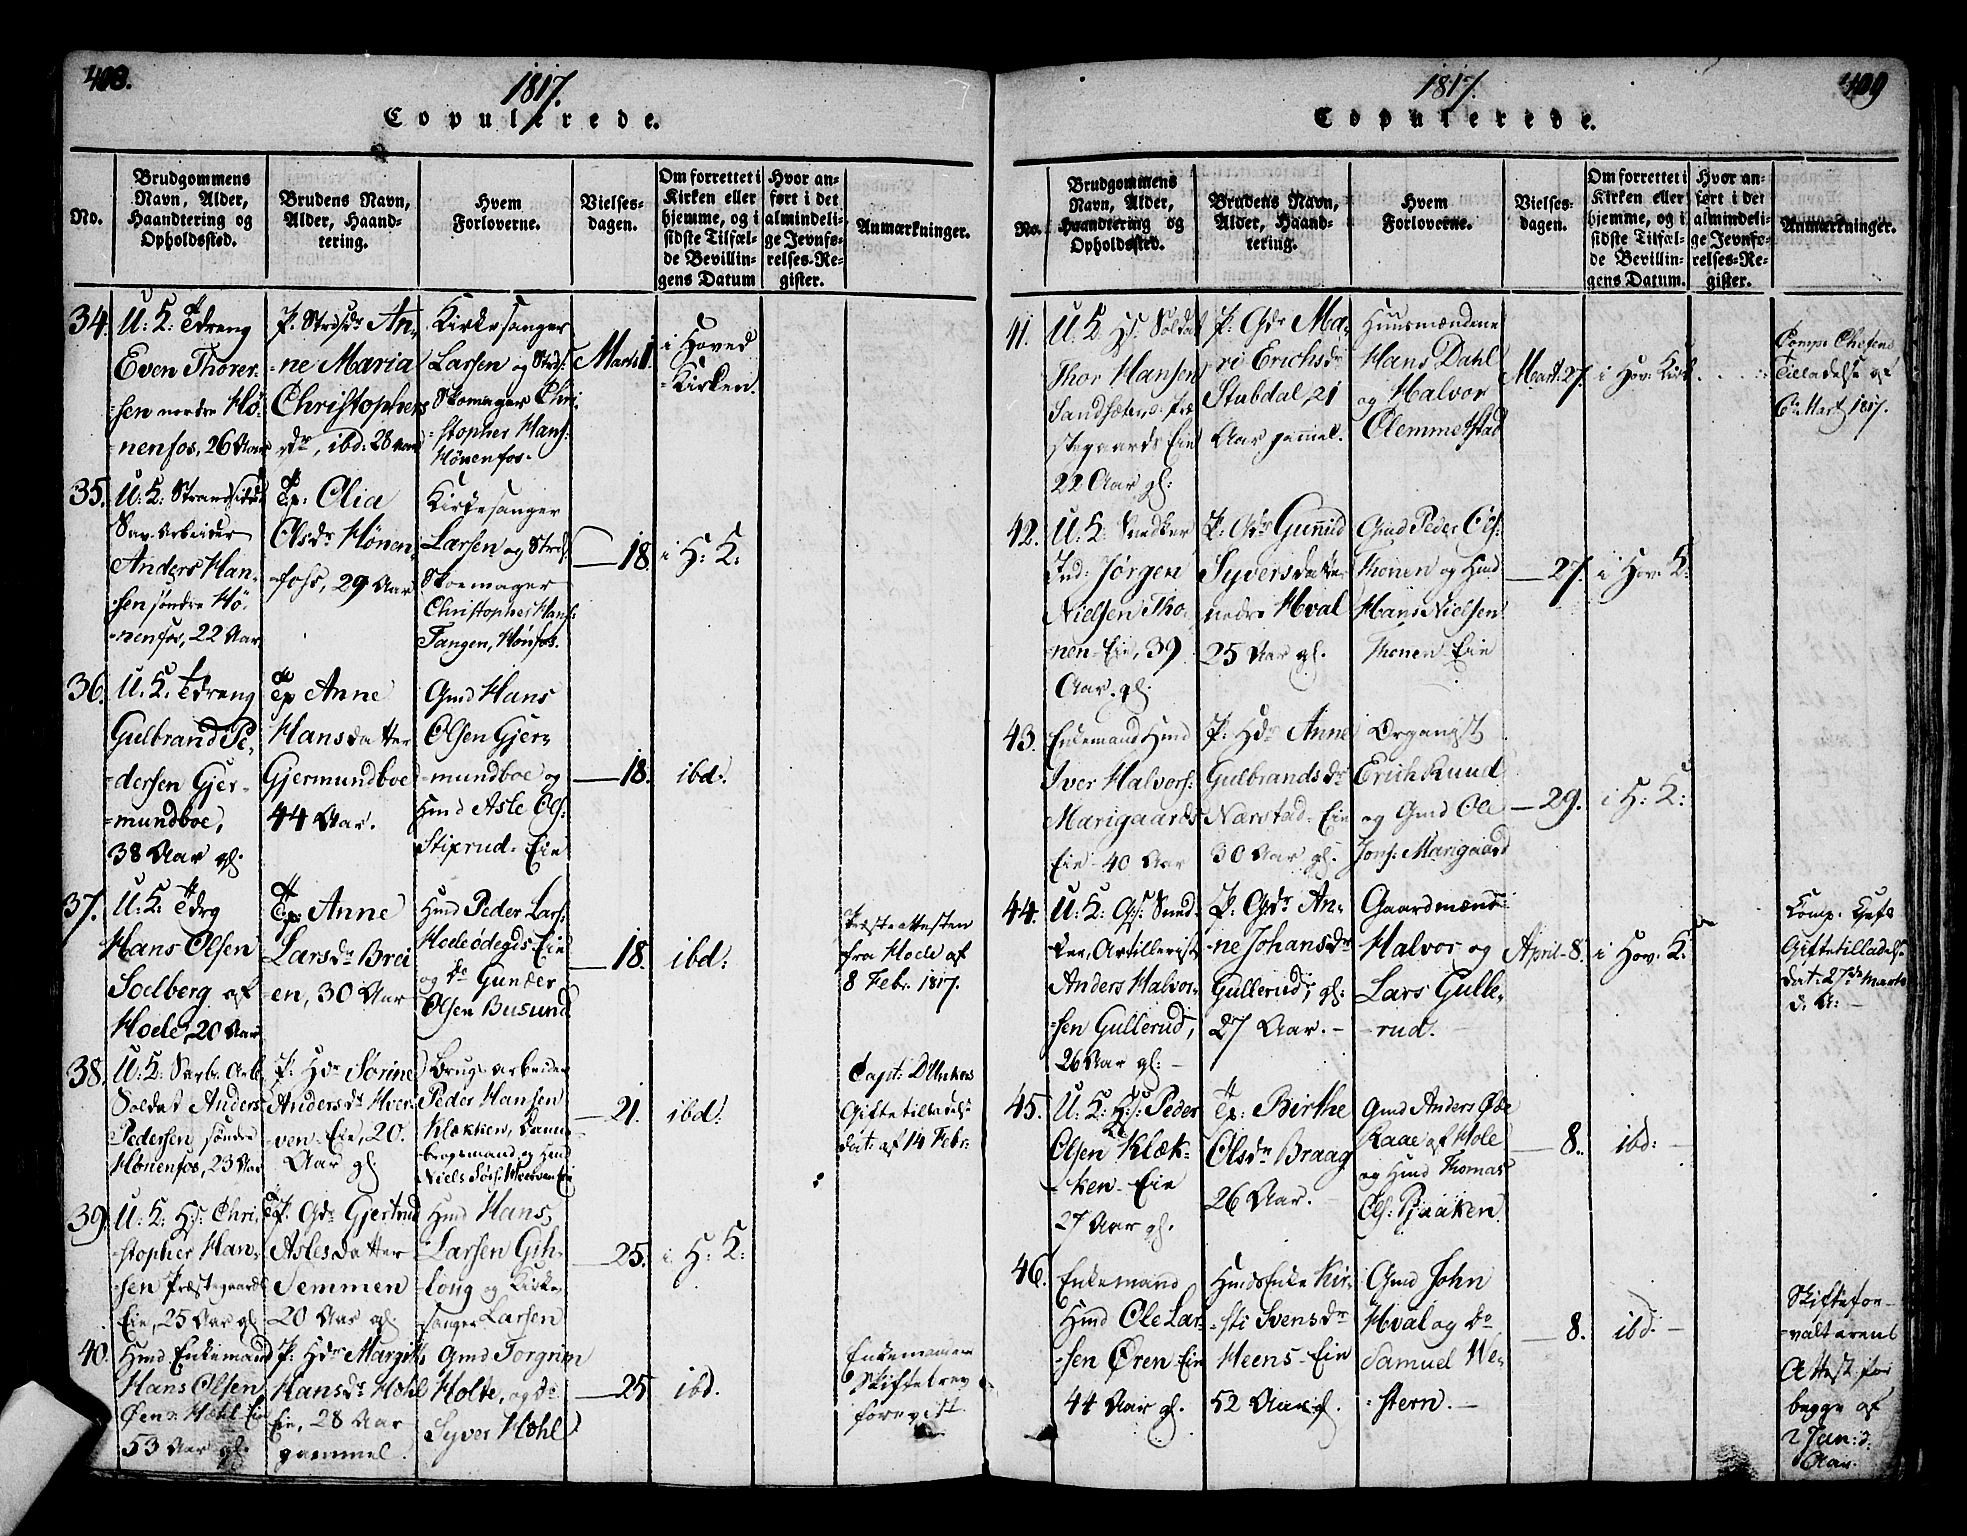 408.
1817.
Copulerede.
No.
Brudgommens Navn, Alder, Haandtering og Opholdssted.
Brudens Navn, Alder, Haandtering.
Hvem Forloverne.
Vielses-dagen.
Om forrettet i Kirken eller hjemme, og i sidste Tilfælde Bevillingens Datum
Hvor anført i det almindelige Jevnførelses-Register.
Anmærkninger.
34.
U: K: Tdreng
Even Thorer-
-sen nordre Hø-
-nenfos, 26 Aar
P. Anne Maria
Christophers
dr, ibd: 28 Aar
Kirkesanger
Larsen og
Skomager Chri-
-stopher Hans:
Hønenfos.
Marts 11
i Hoved
-Kirken.
35.
U: K: Strandsidder
Sav-Arbeider
Anders Han-
-sen søndre Hø-
-nenfos, 22 Aar
Tp: Olia
Olsdr Hønen-
-fos, 29 Aar
Kirkesanger
Larsen og
Skoemager
Christopher Hans:
Tangen, Hønfos.
— 18.
i H: K:
36.
U. K. Tdreng
Gulbrand Pe-
-dersen Gjer-
-mundboe,
38 Aar gl.
Tp Anne
Hansdatter
Gjermundboe
44 Aar.
Gmd Hans
Olsen Gjer-
-mundboe og
Hmd Asle Ols:
Stixrud-Eie
— 18.
ibd:
37.
U: K: Tdrg
Hans Olsen
Solberg af
Hole, 20 Aar
Tp: Anne
Larsdr Brei-
-en, 30 Aar
Hmd Peder Lars:
Eie
og do Gunder
Olsen Busund
— 18.
ibd:
Præsteattesten
fra Hole af
8 Febr. 1817.
38.
U: K: Arb.
Soldat Anders
Pedersen søndre
Hønenfos, 23 Aar
P: Hdr Sørine
Andersdr Hver-
ven-Eie, 20.
Aar gl.
Brugsarbeider
Peder Hansen
Klækken, Danne-
brogsmand og Hmd
Niels Sørs: Hverven Eie
— 21.
ibd:
Capt:
Giftetilladelse
dat: af 14 Febr:
39.
U: K: H:s: Chri-
-stopher Han-
-sen Præstegaards
Eie, 25 Aar gl.
P. Gdr Gjertrud
Aslesdatter
Semmen
20 Aar gl.
Hmd Hans
Larsen Gih-
-long og Kirke-
sanger Larsen
— 25.
i H: K:
40.
Hmd Enkemand
Hans Olsen
Øen-Hohl-Eie
53 Aar gl.
P: Hdr Margit
Hansdr Hohl
Eie, 28 Aar
gammel.
Gmd Torgrim
Holte, og do
Syver Hohl
— 25
ibd.
Enkemanden
Skiftebrev
forevist
409
1817.
Copulerede.
No.
Brudgommens Navn, Alder, Haandtering og Opholdssted.
Brudens Navn, Alder, Haandtering.
Hvem Forloverne.
Vielses-dagen.
Om forrettet i Kirken eller hjemme, og i sidste Tilfælde Bevillingens Datum.
Hvor anført i det almindelige Jevnførelses-Register.
Anmærkninger.
41.
U: K Hs: Soldat
Thor Hansen
Præ-
stegaards Eie
22 Aar gl:
P: Gdr Ma-
ri Erichsdr
Stubdal, 21
Aar gammel.
Huusmændene
Hans Dahl
og Halvor
Clemmetstad
Mart: 27.
i Hov: Kirk.
Comp: Chefens
Tilladelse af
6te Marts 1817.
42.
U: K: Snedker,
Ind: Jørgen
Nielsen Tho-
nen-Eie, 39
Aar. gl.
P: Gdr Gunnild
Syversdatter
nedre Hval
25 Aar gl.
Gmd Peder Ols:
Thonen og Hmd
Hans Nielsen
Thonen Eie
— 27.
i Hov: K:
43.
Enkemand Hmd
Iver Halvors:
Marigaards
Eie 40 Aar
P: Hdr Anne
Gulbrandsdr
Narstad-Eie
30 Aar gl.
Organist
Erich Ruud
og Gmd Ole
Jons: Marigaard
— 29.
i H: K:
44.
U: K: Gs: Sned-
ker, Artillerist
Anders Halvor-
-sen Gullerud,
26 Aar gl: —
P. Gdr An-
-ne Johansdr
Gullerud, gl:
27 Aar. —
Gaardmænd:
Halvor og
Lars Gulle-
-rud. —
April 8.
i Hov: K:
Komp: Chefs
Giftetilladelse
dat: 27de Marts
d: A: —
45.
U: K: H:s: Peder
Olsen Klæk-
-ken-Eie
27 Aar gl.
Tp: Birthe
Olsdr Braag
26 Aar. —
Gmd Anders Øde
Raae af Hole
og Hmd Thomas
Ols: Pjaaken
— 8.
ibd: —
46.
Enkemand
Hmd Ole Lar-
-sen Øren Eie
44 Aar gl.
Hmds Enke Kir-
-sti Svensdr
Heens-Eie
52 Aar gl.
Gmd John
Hval og do
Samuel We-
-stern. —
— 8.
ibd. —
Skiftefor-
-valterens
Attest for
begge af
2 Jan: d:
Aar.